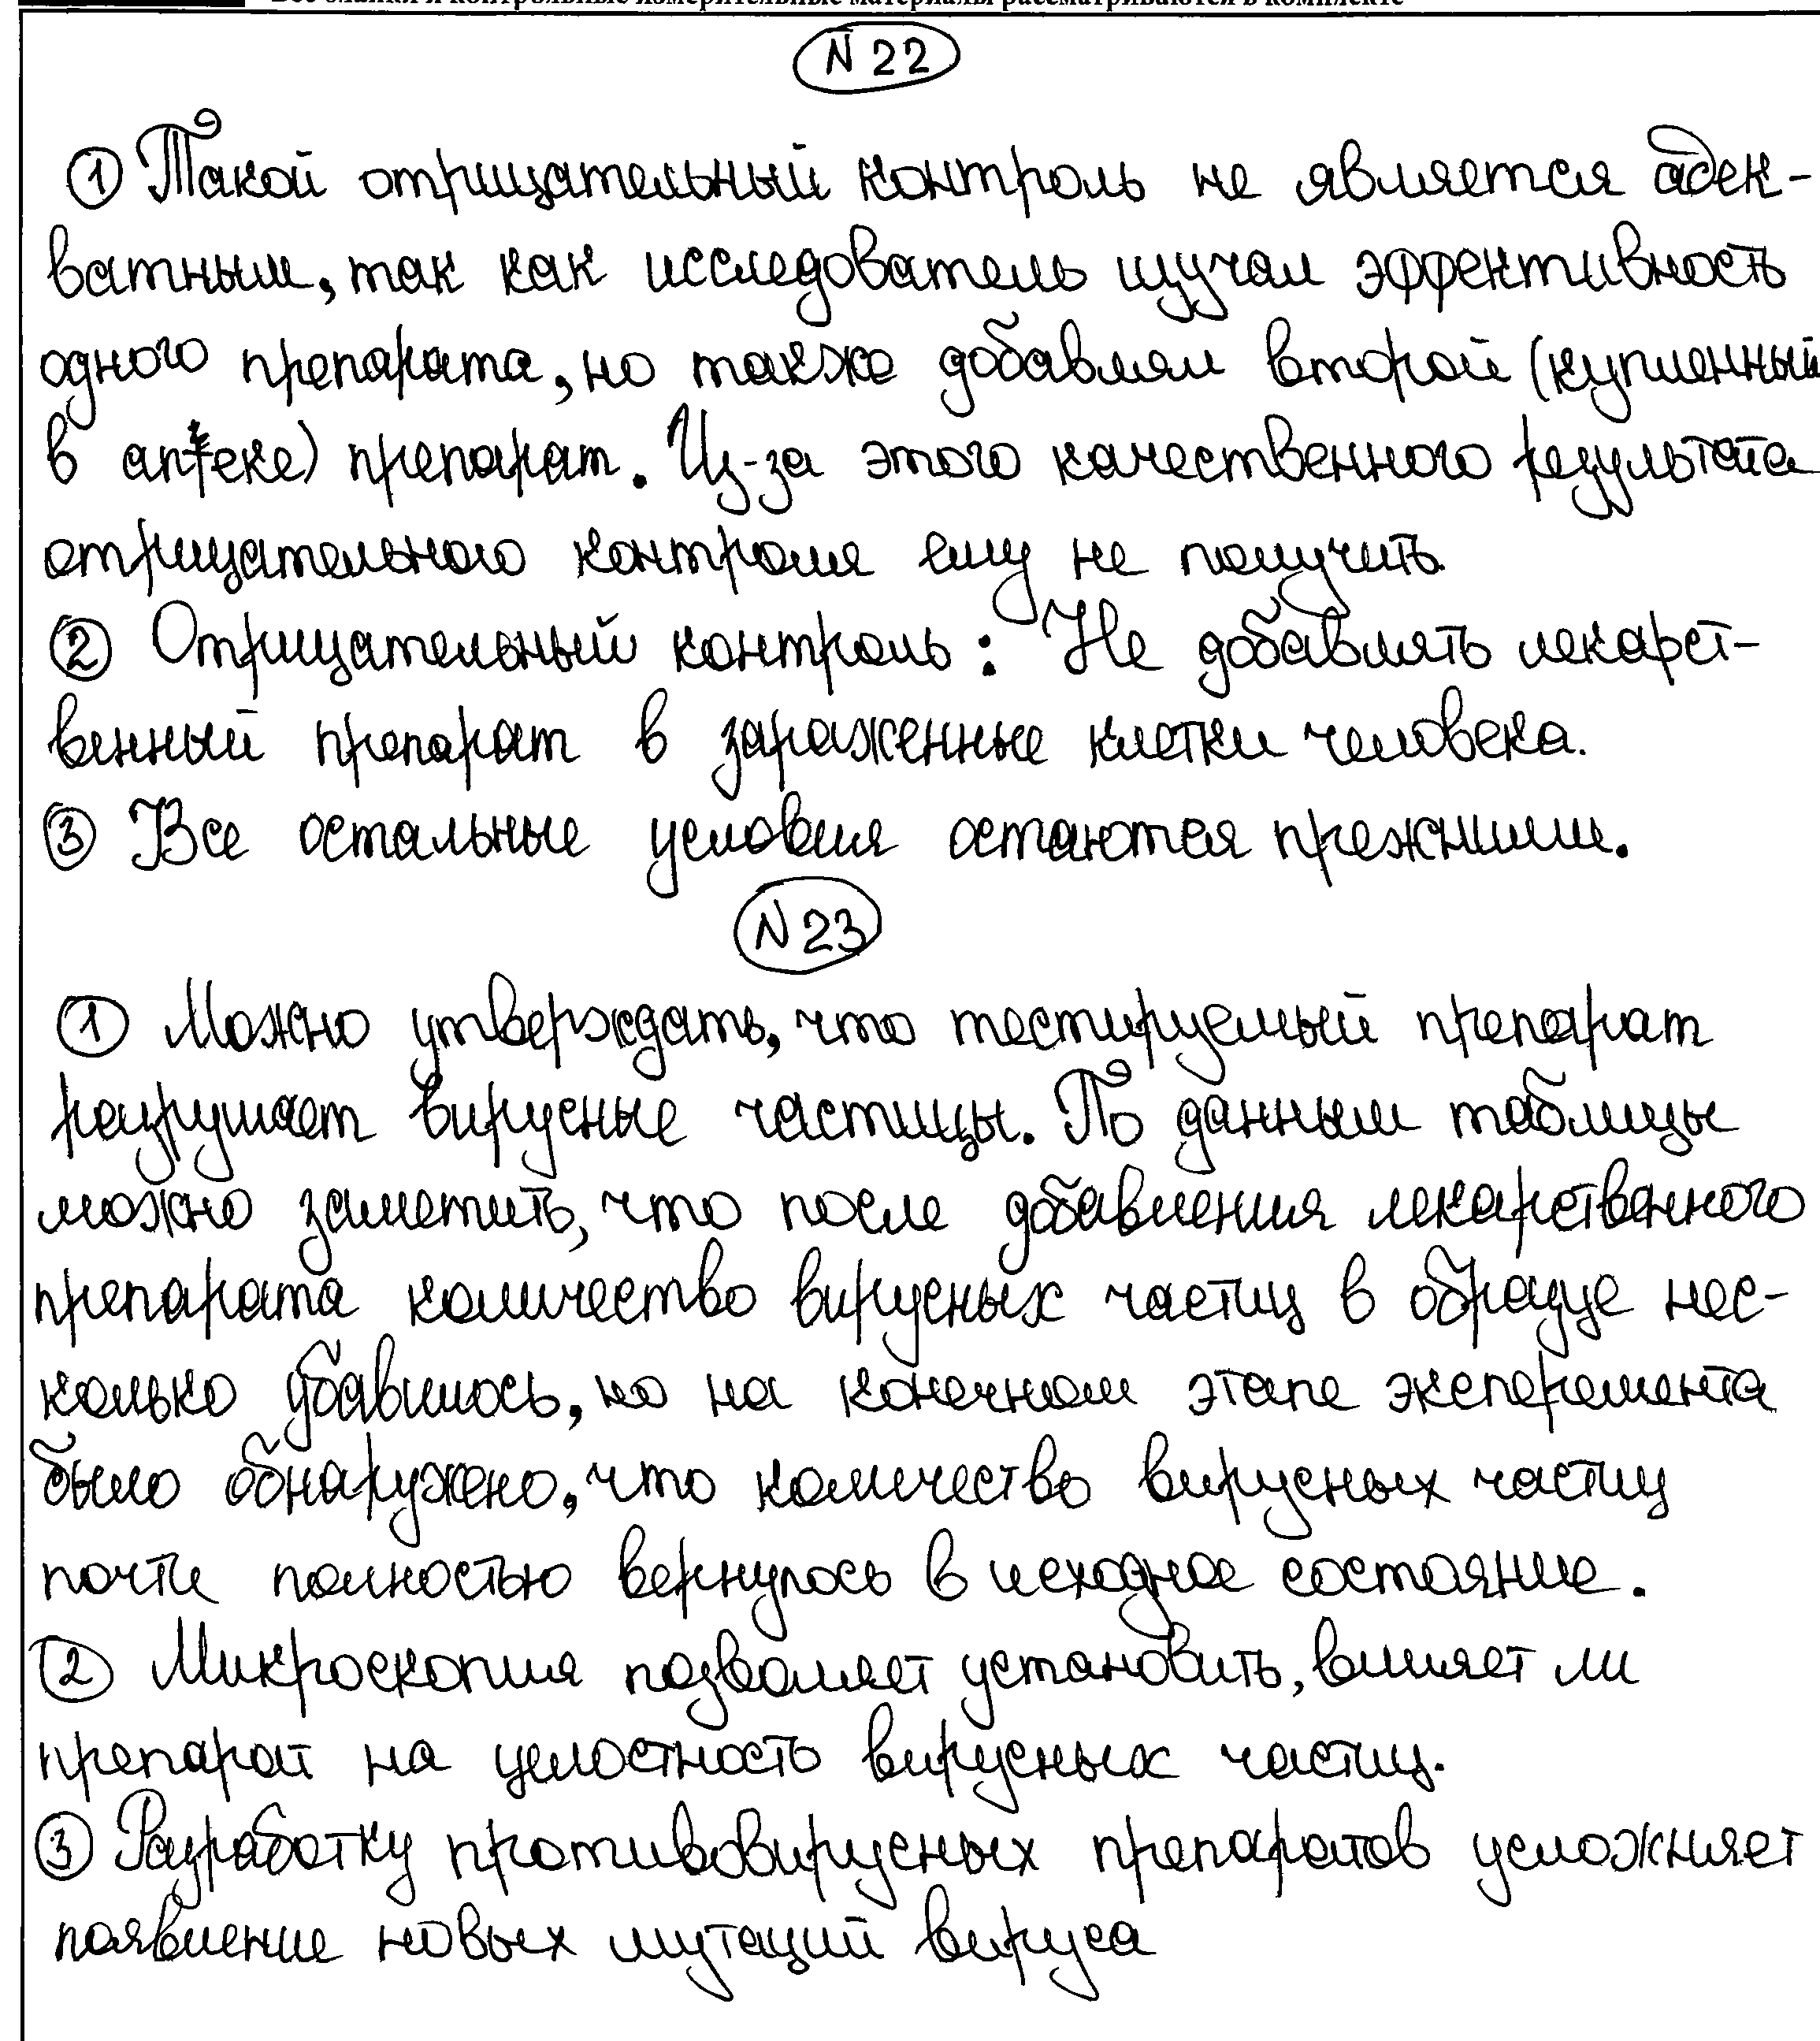 Все бланки и контрольные измерительные материалы рассматриваются в комплекте
N 22
① Такой отрицательный контроль не является адек-
ватным, так как исследователь изучал эффективность
одного препарата, но также добавлял второй (купленный
в аптеке) препарат. Из-за этого качественного результата
отрицательного контроля ему не получить.
② Отрицательный контроль: Не добавлять лекарст-
венный препарат в зараженные клетки человека.
③ Все остальные условия остаются прежними.
N 23
① Можно утверждать, что тестируемый препарат
разрушает вирусные частицы. По данным таблицы
можно заметить, что после добавления лекарственного
препарата количество вирусных частиц в образце нес-
колько убавилось, но на конечном этапе эксперемента
было обнаружено, что количество вирусных частиц
почти полностью вернулось в исходное состояние.
② Микроскопия позволяет установить, влияет ли
препарат на целостность вирусных частиц.
③ Разработку противовирусных препаратов усложняет
появление новых мутаций вируса